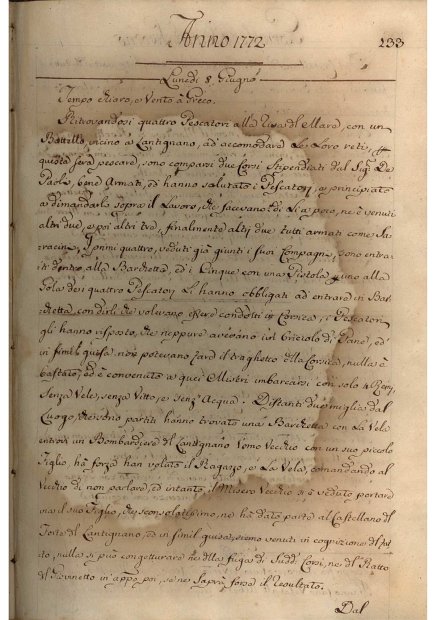 Anno 1772
233
Lunedi 8. Giugno
Tempo chiaro, e Vento à Greco.
Ritrovandosi quattro Pescatori alla Riva del Mare, con un
Battello, vicino a Lantignano, ad accomodare Le Loro reti,
questa sera pescare, sono comparsi due Corsi Stipendiati dal Sig.r De
Paoli, bene Armati, ed hanno salutato i Pescatori, e principiato
a dimandarli sopra il Lavoro, che facevano; di Lì a poco, ne è venuti
altri due, e poi altri tre, finalmente altri due tutti armati come Sa
racini. I primi quattro, veduti già giunti i suoi Compagni, sono entra
ti dentro alla Barchetta, ed i Cinque con una Pistola uno alla
Gola dei quattro Pescatori Li hanno obbligati ad entrare in Bar
chetta, con dirli che volevano essere condotti in Corsica, i Pescatori
gli hanno risposto, che neppure avevano un Briciolo di Pane, ed
in simil guisa non potevano fare il traghetto della Corsica, nulla è
bastato, ed è convenuto a quei Mestri imbarcarsi con solo 4 Remi,
Senza Vele, senza Vitto, e senz'Acqua. Distanti due miglia dal
Luogo, che sono partiti hanno trovato una Barchetta con La Vela
entrovi un Bombardiere di Lantignano Vomo Vecchio con un suo piccolo
Figlio, hà forza han voluto il Ragazzo, e La Vela, comandando al
Vecchio di non parlare, ed intanto il Misero Vecchio si è veduto portare
via il suo Figlio, che sconsolatissimo, ne hà dato parte al Castellano del
Forte di Lantignano, ed in simil guisa, siamo venuti in cognizione del fat
to, nulla si può congetturare nè della fuga di Sudd.i Corsi, ne del Ratto
del Giovinetto in app.o poi, se ne saprà forse il Resultato.
Dal